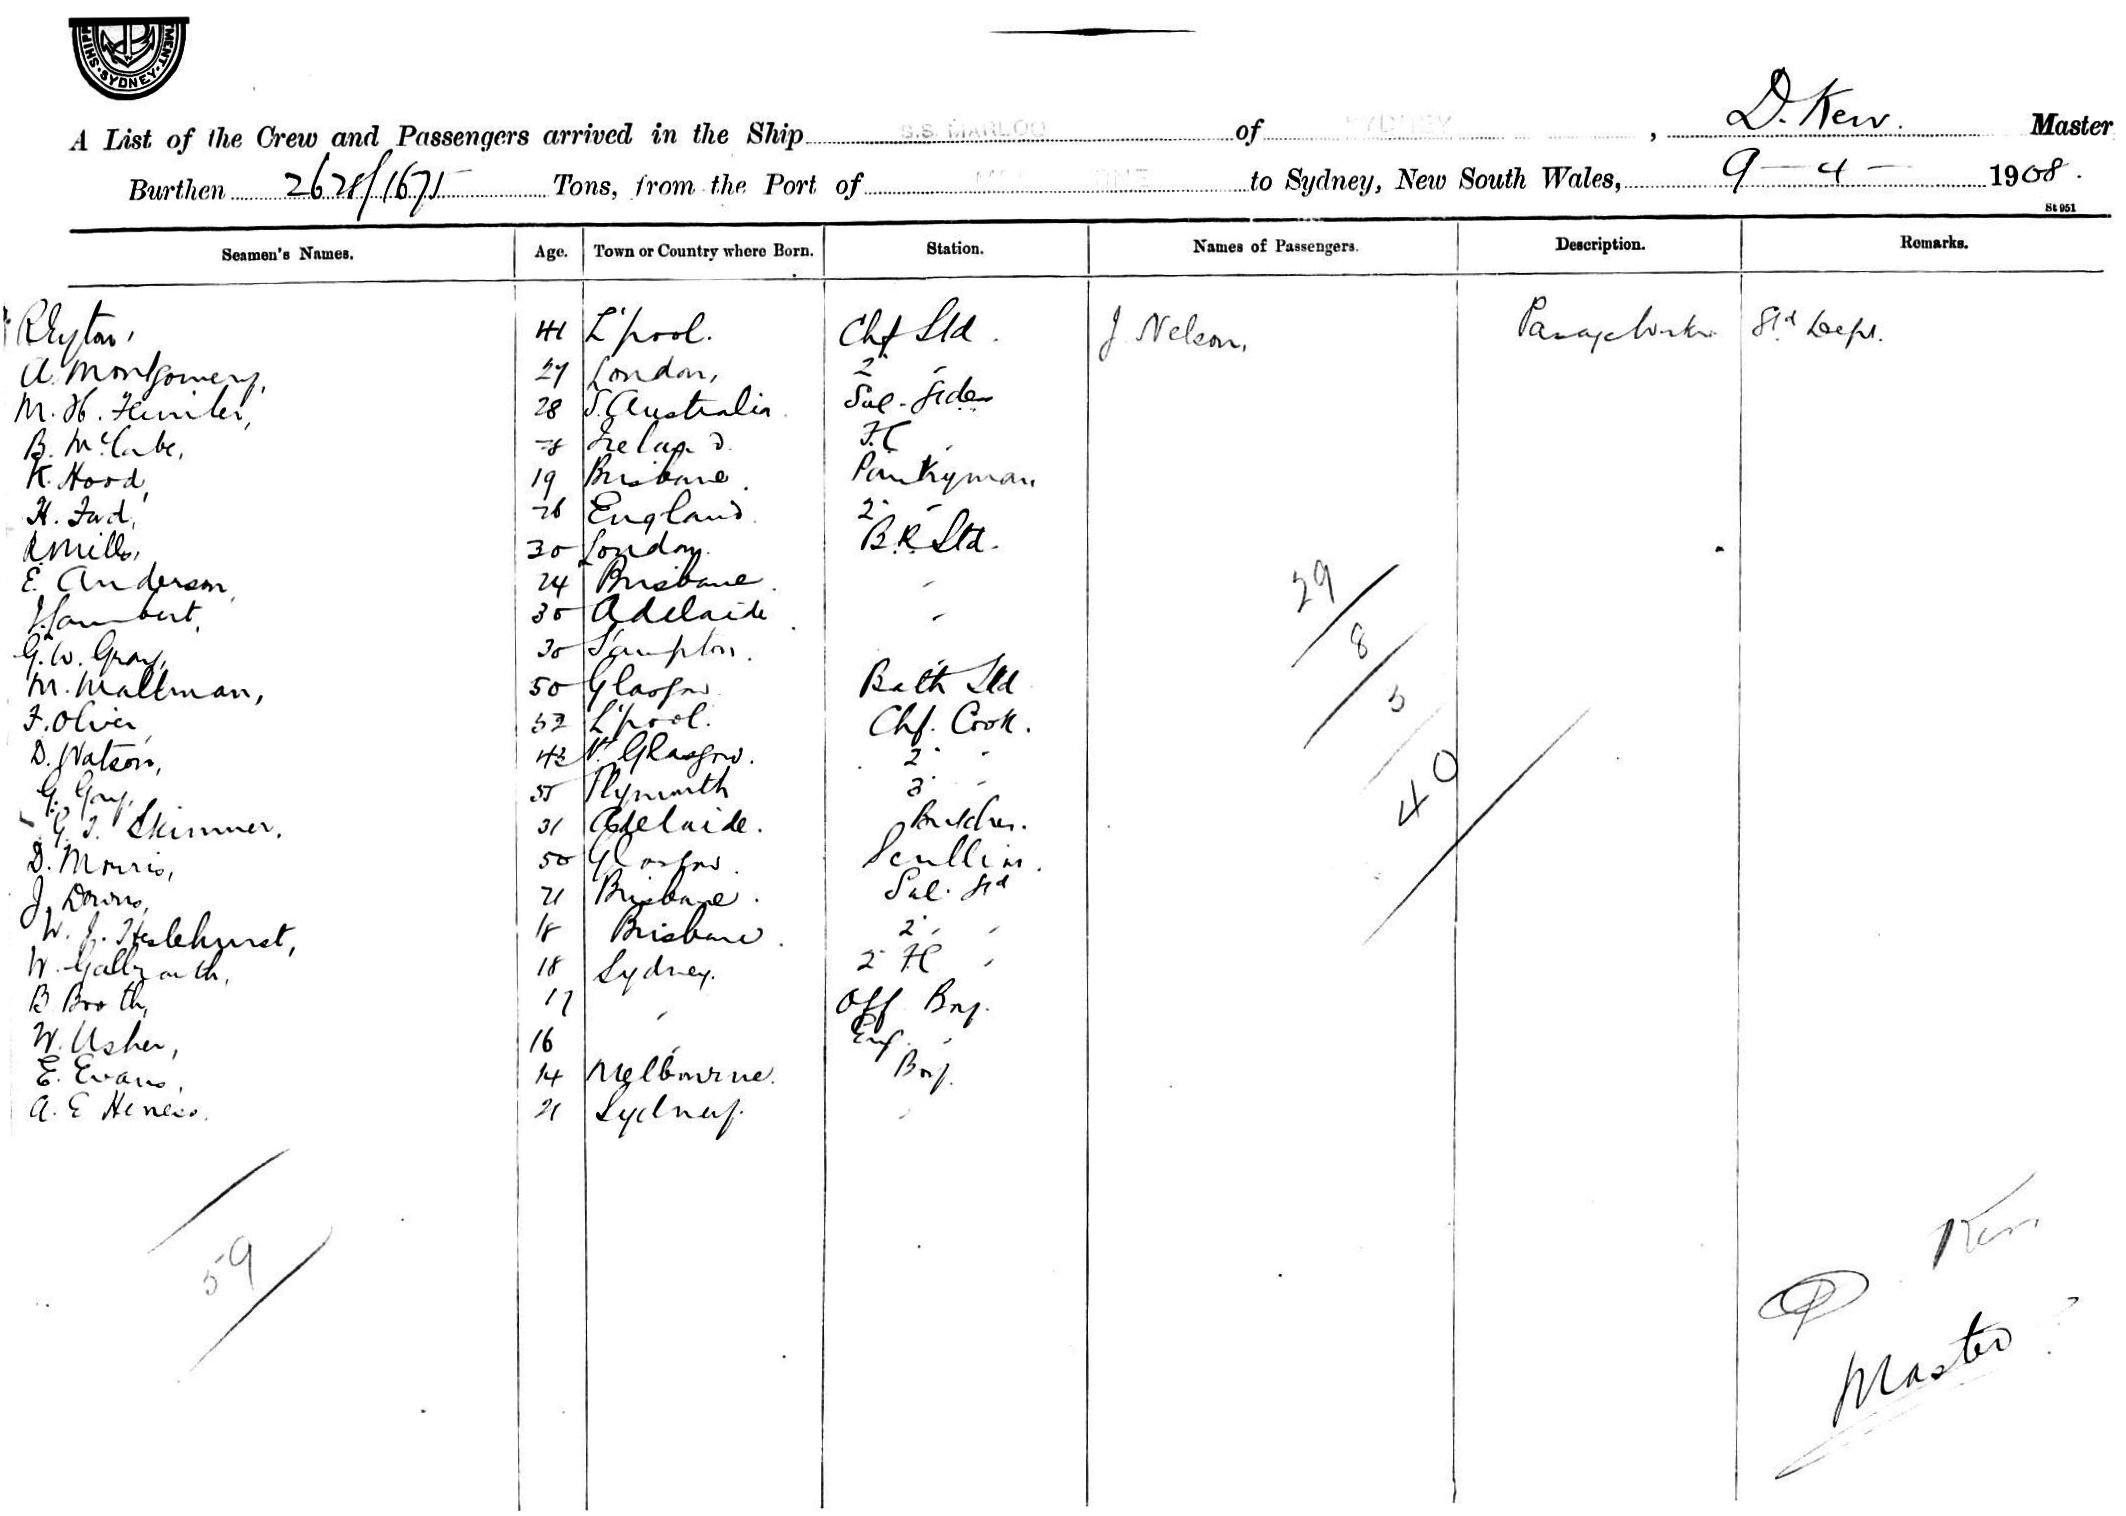 SYDNEY
A List of the Crew and Passengers arrived in the Ship S.S. MARLOO of SYDNEY, D. Kerr. Master
Burthen 2628/1675 Tons, from the Port of to Sydney, New South Wales, 9-4-1908.
St 951
Seamen's Names. Age. Town or Country where Born. Station. Names of Passengers. Description. Remarks.
41 L'pool. Chf Std. J. Nelson, Std Dept.
A. Montgomery, 27 London, 2 "
M. H. 28 S. Australia. Sal. "
B. McCabe, Ireland. F.C "
K. Hood, 19 Brisbane. Pantryman
H. Ford, 26 England. 2 "
R. Mills, 30 London. B.R. Std.
E. Anderson, 24 Brisbane. "
J. Lambert, 30 Adelaide. "
G. W. Gray, 30 S'ampton.
M. Maltman, 50 Glasgow. Bath Std
29
8
3
40
F. Oliver, 52 L'pool. Chf. Cook.
D. Watson, 43 Glasgow. 2 "
G. Gray, 55 Plymouth 3 "
G. T. Skinner. 31 Adelaide. Butcher.
D. Morris, 50 Glasgow. Scullion.
J. Downs, 21 Brisbane. Sal. Std
W. J. Heslehurst, 18 Brisbane. 2 "
W. 18 Sydney. 2 FC "
B Booth, 17 " Off Boy.
W. Usher, 16 " Eng. "
E. Evans, 14 Melbourne. Boy.
A. E 21 Sydney. "
59
D Kerr
Master